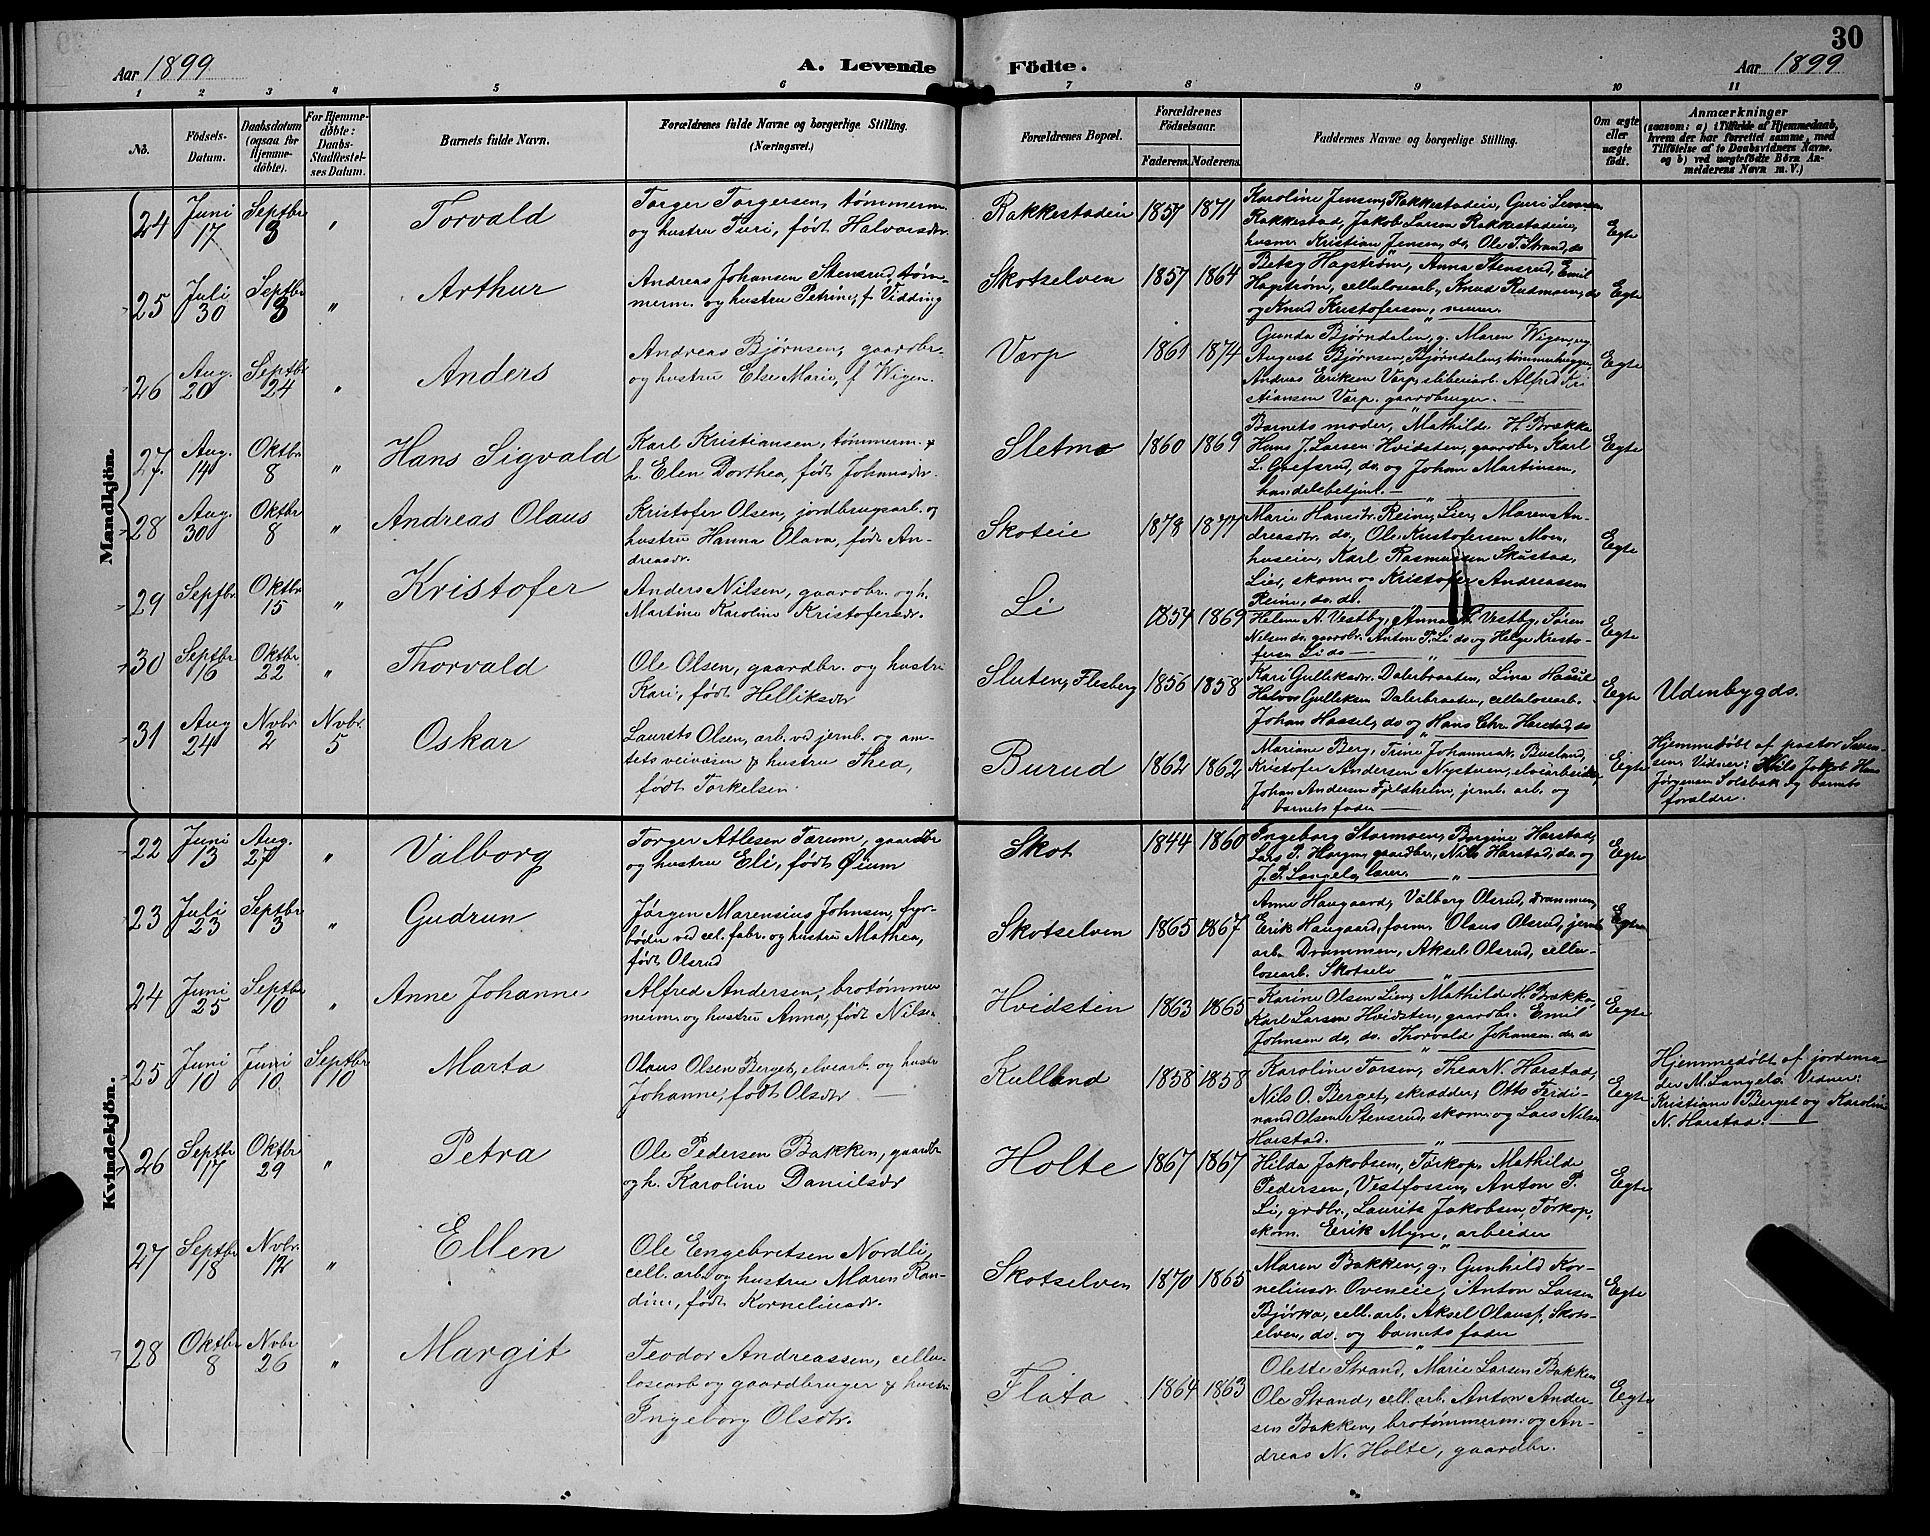 30
Aar 1899
A. Levende Födte.
Aar 1899
1 2 3 4 5 6 7 8 9 10 11
No.
Födsels-
Datum.
Daabsdatum
(ogsaa for
Hjemme-
döbte).
For Hjemme-
döbte:
Daabs-
Stadfestel-
ses Datum.
Barnets fulde Navn.
Forældrenes fulde Navne og borgerlige Stilling.
(Næringsvei.)
Forældrenes Bopæl.
Forældrenes
Födselsaar.
Faderens. Moderens.
Faddernes Navne og borgerlige Stilling.
Om ægte
eller
uægte
födt.
Anmærkninger
(saasom: a) i Tilfælde af Hjemmedaab,
hvem der har forrettet samme, med
Tilföielse af to Daabsvidners Navne,
og b) ved uægtefödte Börn An-
melderens Navn m. V.)
Mandkjön.
24 Juni 17 Septbr 3 " Torvald
Torger Torgersen, tømmerm.
og hustru Turi, født Halvorsdr.
Rakkestadeie 1857 1871
Karoline Jensen, Rakkestadeie, Guri
Rakkestad, Jakob Larsen Rakkestadeie,
husm. Kristian Jensen, do, Ole T. Strand, do
Egte
25 Juli 30 Septbr 3 " Arthur
Andreas Johansen Stensrud, tøm-
merm. og hustru Petrine, f. Vidding
Skotselven 1857 1864
Betsy Hagstrøm, Anna Stensrud, Emil
Hagstrøm, cellulosearb., Knud Rudmoen, do
og Knud Kristofersen, murer.
Egte
26 Aug. 20 Septbr 24 " Anders
Andreas Bjørnsen, gaardbr.
og hustru Else Marie, f. Wigen.
Varp 1861 1874
Gunda Bjørndalen, g. Maren Wigen, ug
August Bjørnsen, Bjørndalen, tømmerhugger,
Andreas Eriksen Varp, sliberiarb. Alfred Kri
stiansen Varp. gaardbruger.
Egte
27 Aug. 14 Oktbr 8 " Hans Sigvald
Karl Kristiansen, tømmerm. &
h. Elen Dorthea, født Johansdr.
Sletmo 1860 1869
Barnets moder, Mathilde H. Brekke
Hans J. Larsen Hvidsten, gaardbr, Karl
L. Grefsrud, do. og Johan Martinsen,
handelsbetjent.
Egte
28 Aug. 30 Oktbr 8 " Andreas Olaus
Kristofer Olsen, jordbrugsarb. og
hustru Hanna Olava, født An-
dreasdr.
Skoteie 1878 1877
Marie Hansdr. Reine, Lier, Maren An-
dreasdr. do, Ole Kristofersen Moen,
huseier, Karl Rasmussen Skustad,
Lier, skom. og Kristofer Andreassen
Reine, do. do.
Egte
29 Septbr 1 Oktbr 15 " Kristofer
Anders Nilsen, gaardbr. og h.
Martine Karoline Kristofersdr.
Li 1854 1869
Helene A. Vestby, Anna A. Vestby, Søren
Nilsen do. gaardbr. Anton P. Li do og Helge Kristo-
fersen Li do
Egte
30 Septbr 16 Oktbr 22 " Thorvald
Ole Olsen, gaardbr. og hustru
Kari, født Helliksdr
Sluten, Flesberg 1856 1858
Kari Gulleksdr. Dalerbraaten, Lina Hassel
Halvor Gulleksen Dalerbraaten, cellulosearb.
Johan Hassel, do og Hans Chr. Harstad, do
Egte
Udenbygds.
31 Aug 24 Nvbr 2 Nvbr. 5 Oskar
Laurits Olsen, arb. ved jernb. og am-
tets veivæsen & hustru Thea,
født Torkelsen
Burud 1862 1862
Mariane Berg, Trine Johannesdr. Busland,
Kristofer Andersen Nystuen, elvearbeider,
Johan Andersen Fjeldheim, jernb. arb. og
barnets fader
Egte
Hjemmedøbt af pastor Søren-
sen. Vidner: Nils Jakob Hans
Jørgensen Solsbak og barnets
forældre.
Kvindekjön.
22 Juni 13 Aug. 27 " Valborg
Torger Atlesen Tarum, gaardbr
og hustru Eli, født Øium
Skot 1844 1860
Ingeborg Stormoen, Borgine Harstad,
Lars P. Horgen, gaardbr., Nils Harstad, do. og
J. P. Langelg lærer.
Egte
23 Juli 23 Septbr 3 " Gudrun
Jørgen Marensius Johnsen, fyr-
bøder ved cel. fabr. og hustru Mathea,
født Olsrud
Skotselven 1865 1867
Anne Haugaard, Valberg Olsrud, Drammen,
Erik Haugaard, form. Olaus Olsrud, jernb.
arb. Drammen, Aksel Olsrud, cellu-
losearb. Skotselv
Egte
24 Juni 25 Septbr 10 " Anne Johanne
Alfred Andersen, brotømmer
merm. og hustru Anna, født Nilsen
Hvidstin 1863 1865
Karine Olsen Lien, Mathilde H. Brekke,
Karl Larsen Hvidsten, gaardbr. Emil
Johnsen do, do. Thorvald Johansen do. do
Egte
25 Juni 10 Juni 10 Septbr 10 Marta
Olaus Olsen Berget, elvearb. og hustr
Johanne, født Olsdr
Kulland 1858 1858
Karoline Torsen, Thea N. Harstad,
Nils O. Berget, skrædder, Otto Ferdi-
nand Olsen Stensrud, skom. og Lars Nilsen
Harstad.
Egte
Hjemmedøbt af jordemo-
der M. Langels. Vidner:
Kristiane Berget og Karoline
N. Harstad.
26 Septbr 17 Oktbr 29 " Petra
Ole Pedersen Bakken, gaardbr
og h. Karoline Danielsdr
Holte 1867 1867
Hilda Jakobsen, Torkop, Mathilde
Pedersen, Vestfossen, Anton P.
Li, grdbr., Lauritz Jakobsen, Torkop,
skom. Erik Myre, arbeider
Egte
27 Septbr 18 Nvbr. 12 " Ellen
Ole Engebretsen Nordli,
cell. arb. og hustru Maren Ran-
dine, født Korneliusdr.
Skotselven 1870 1865
Maren Bakken, g. Gunhild Kor-
neliusdr Oveneie, Anton Larsen
Bjørka, cell. arb. Aksel Olausf, Skots-
elven, do. og barnets fader
Egte
28 Oktbr 8 Nvbr 26 " Margit
Teodor Andreassen, cellu-
losearb og gaardbruger & hustru
Ingeborg Olsdtr.
Flata 1864 1863
Olette Strand, Marie Larsen Bakken
Ole Strand, cell. arb. Anton Ander-
sen Bakken, brotømmerm. og An-
dreas N. Holte, gaardbr.
Egte